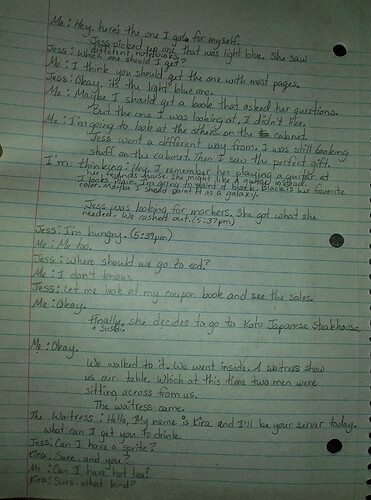 Me: Hey, here's the one I got for myself.
Jess picked up one that was light blue. She saw
different notebooks.
Jess: Which one should I get?
Me: I think you should get the one with most pages.
Jess: Okay. it's the light blue one.
Me: Maybe I should get a book that asked her questions.
But the one I was looking at, I didn't like.
Me: I'm going to look at the others on the cabinet.
Jess went a different way from. I was still looking
stuff on the cabinet. Then I saw the perfect gift.
I'm thinking: Hey, I remember her playing a guitar at
her friends house. She might like a guitar instead.
I looks plain. I'm going to paint it black. Black is her favorite
color. Maybe I should paint it as a galaxy.
Jess was looking for markers. She got what she
needed. We cashed out. (5:37pm)
Jess: I'm hungry. (5:39pm)
Me: Me too.
Jess: Where should we go to eat?
Me: I don't know.
Jess: Let me look at my coupon book and see the sales.
Me: Okay.
Finally, she decides to go to Kato Japanese Steakhouse
+ Sushi.
Me: Okay.
We walked to it. We went inside. A waitress show
us our table. Which at this time two men were
sitting across from us.
The waitress came.
The Waitress: Hello, My name is Kira and I'll be your server today.
what can I get you to drink.
Jess: Can I have a sprite?
Kira: Sure. and you?
Me: Can I have hot tea?
Kira: Sure. what kind?